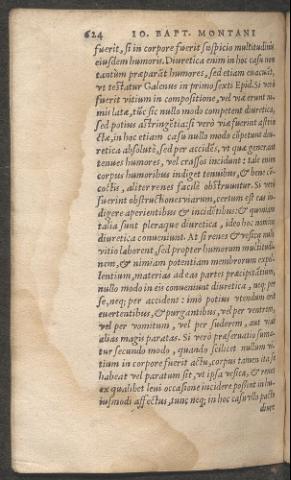 624 IO. BAPT. MONTANI
fuerit, si in corpore fuerit suspicio multitudinis
eiusdem humoris. Diuretica enim in hoc casu non
tantùm præparãt humores, sed etiam euacuãt,
vt testatur Galenus in primo sexti Epid. Si verò
fuerit vitium in compositione, vel viæ erunt ni-
mis latæ, tũc sic nullo modo competunt diuretica,
sed potius astringẽtia: si verò viæ fuerint astri-
ctæ, in hoc etiam casu nullo modo cõpetunt diu-
retica absolutè, sed per accidẽs, vt quæ generant
tenues humores, vel crassos incidunt: tale enim
corpus humoribus indiget tenuibus, & bene cõ-
coctis, aliter renes facilè obstruuntur. Si verò
fuerint obstructiones viarum, certum est eas in-
digere aperientibus & incidẽtibus: & quoniam
talia sunt pleraque diuretica, ideo hoc nomine
diuretica conueniunt. At si renes & vesica nullo
vitio laborent, sed propter humorum multitudi-
nem, & nimiam potentiam membrorum expel-
lentium, materias ad eas partes præcipitãtium,
nullo modo in eis conueniunt diuretica, neq; per
se, neq; per accidens: imò potius vtendum erit
euertentibus, & purgantibus, vel per ventrem,
vel per vomitum, vel per sudorem, aut vias
alias magis paratas. Si verò præseruatio suma-
tur secundo modo, quando scilicet nullum vi-
tium in corpore fuerit actu, corpus tamen ita se
habeat vel paratum sit, vt ipsa vesica, & renes
ex qualibet leui occasione incidere possint in hu-
iusmodi affectus, tunc neq; in hoc casu vllo pacto
diure